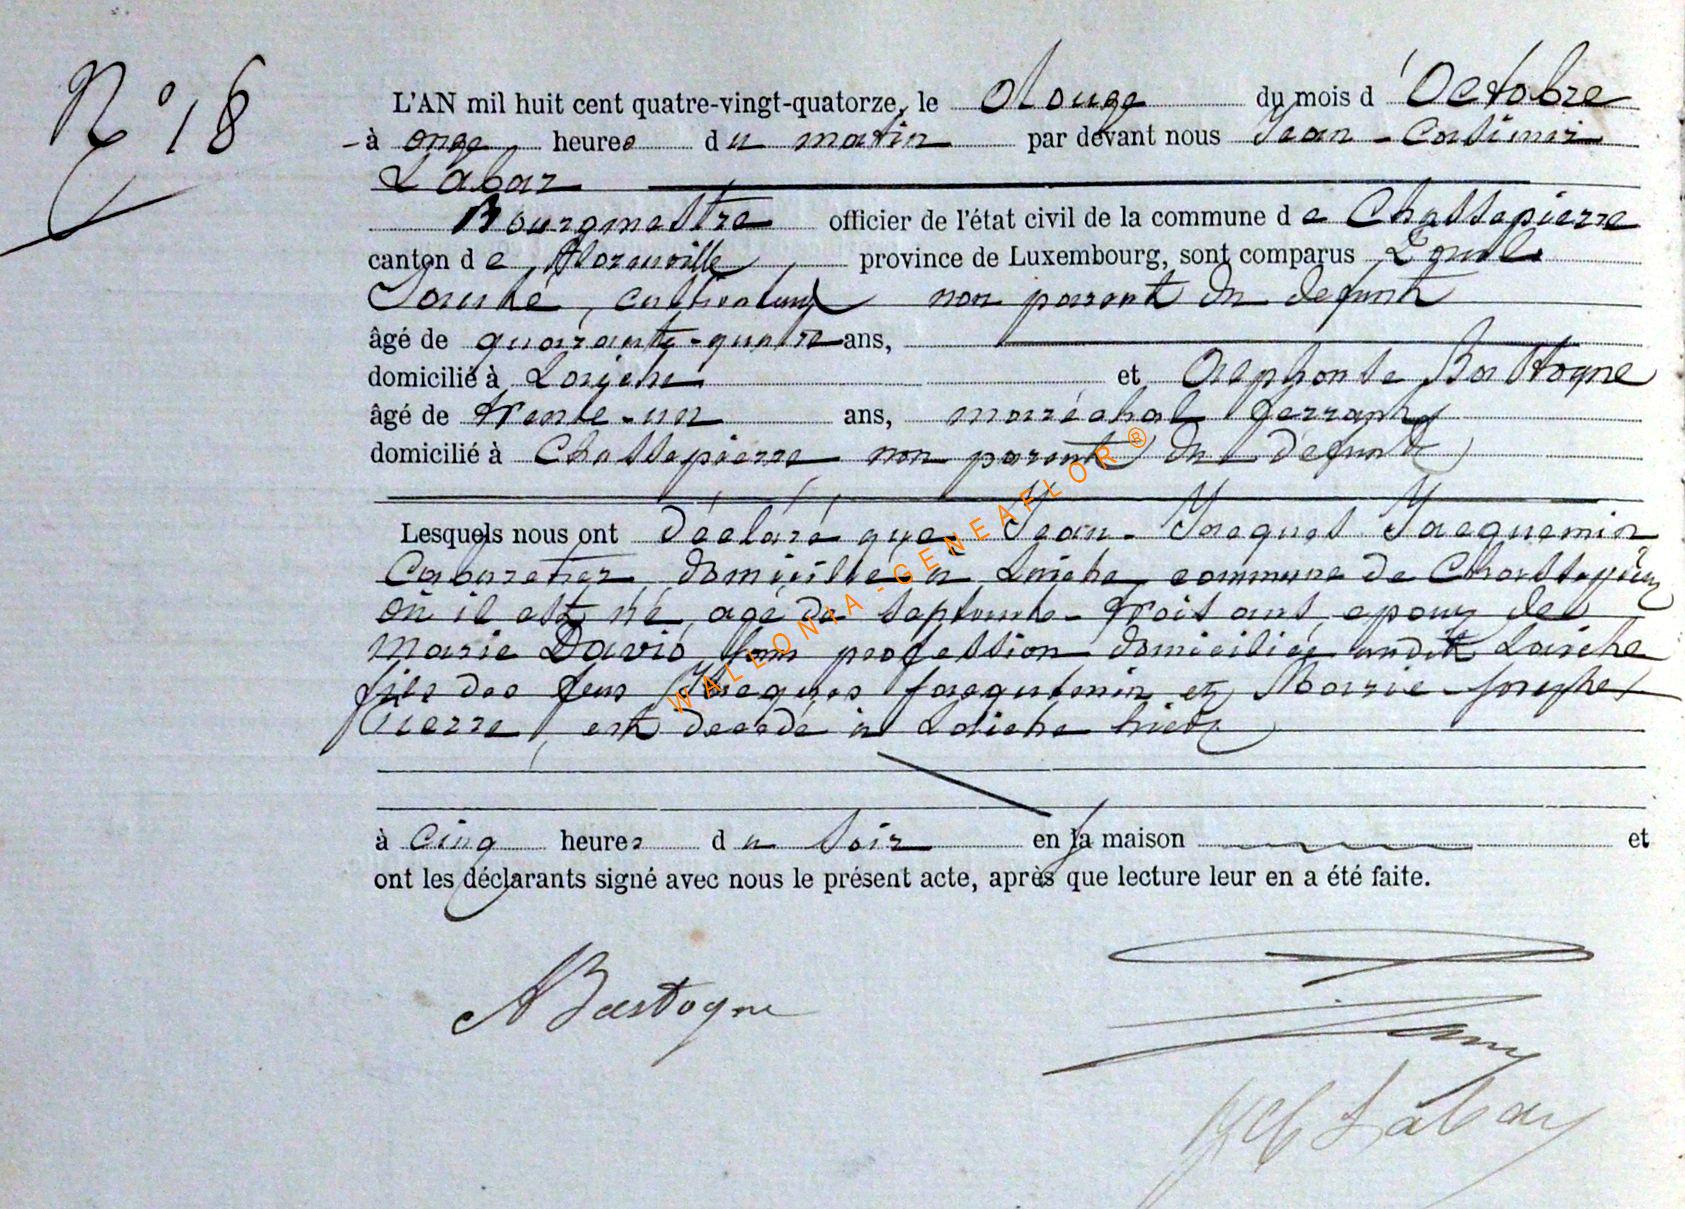 N° 18
L'AN mil huit cent quatre-vingt-quatorze, le douze du mois d'Octobre
à onze heures du matin par devant nous Jean-Casimir
Labar
Bourgmestre officier de l'état civil de la commune de Chassepierre
canton de Florenville province de Luxembourg, sont comparus
cultivateur non parent du defunt
âgé de quarante-quatre ans,
domicilié à Laiche et Alphonse Bastogne
âgé de trente-un ans, maréchal ferrant
domicilié à Chassepierre non parent du défunt
Lesquels nous ont déclaré que Jean-Jacques Jacquemin
Cabaretier domicilié à Laiche, commune de Chassepierre
où il est né, agé de septante-trois ans, epoux de
Marie David, sans profession domiciliée audit Laiche
fils des feus Jacques Jacquemin et Marie Josephe
Pierre, est décédé à Laiche hier
à cinq heures du soir en sa maison et
ont les déclarants signé avec nous le présent acte, après que lecture leur en a été faite.
WALLONIA-GENEAFLOR®
ABastogne
JC Labar